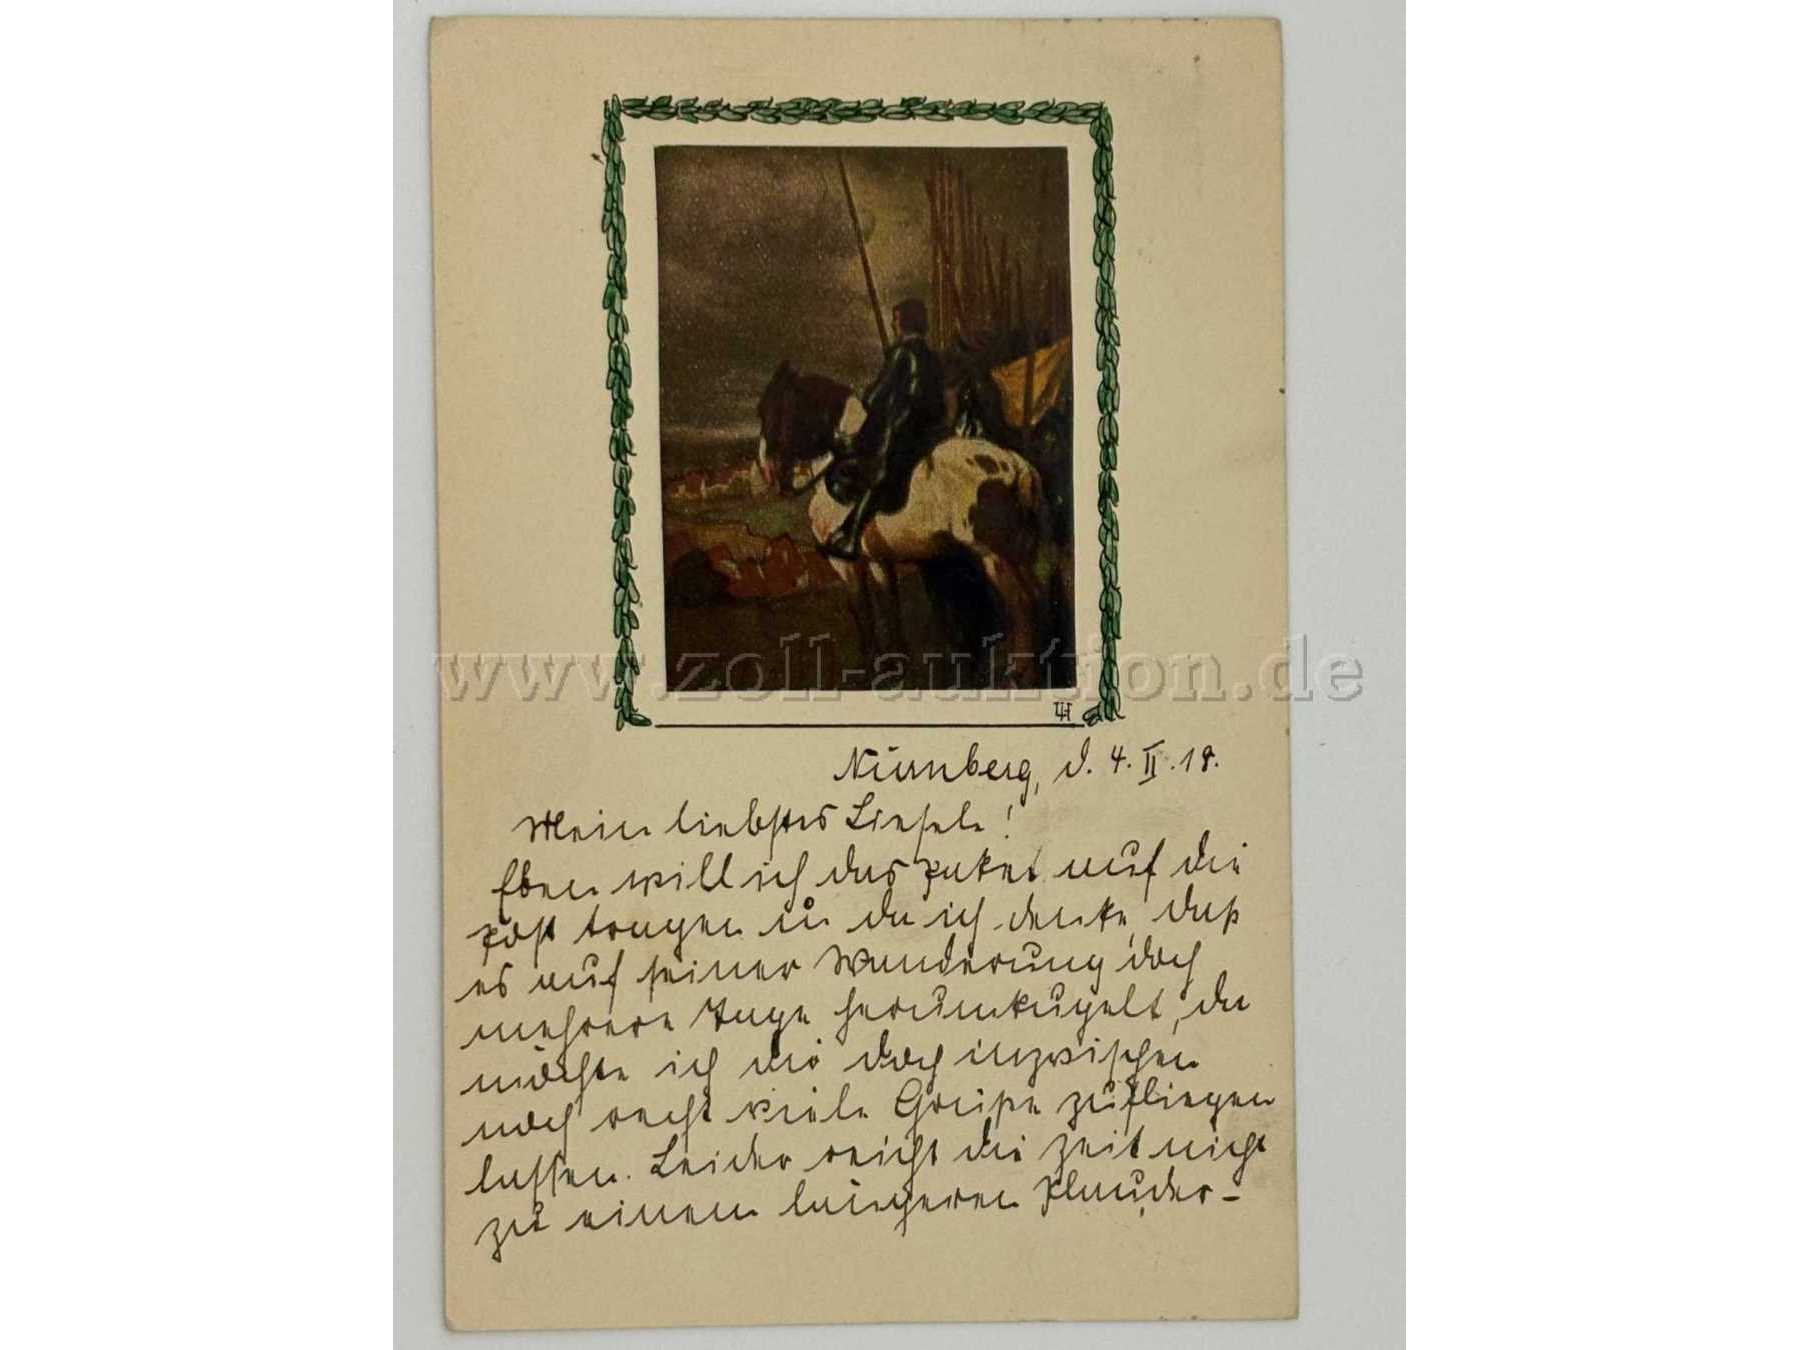 www.zoll-auktion.de
TH
Nürnberg, d. 4. II. 18.
Mein liebstes Liesele!
Eben will ich das Paket auf die
Post tragen u. da ich denke, daß
es auf seiner Wanderung doch
mehrere Tage herumkugelt, da
möchte ich dir doch inzwischen
noch recht viele Grüße zufliegen
lassen. Leider reicht die Zeit nicht
zu einem längeren Plauder-